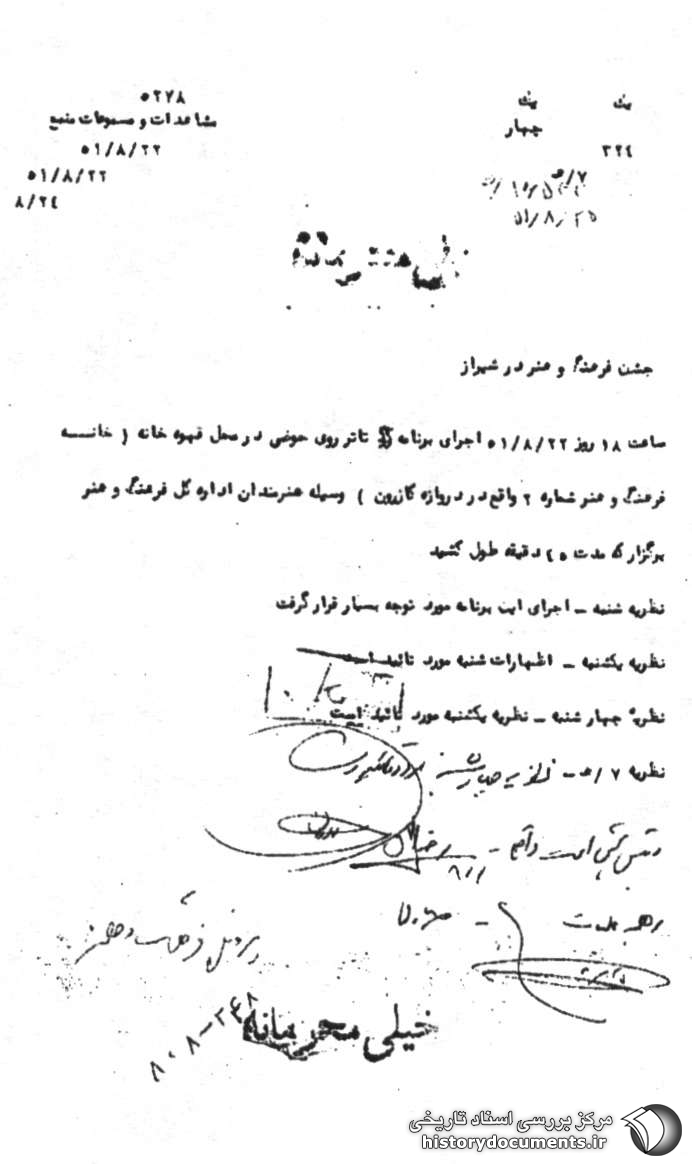 یک یک ۵۲۷۸
چهار مشاهدات و مسموعات منبع
۳۲٤ ۵۱/۸/۲۲
۷/ه ۵۱/۸/۲۲
۸/۲٤
۵۱/۸/۲۵
خیلی محرمانه
جشن فرهنگ و هنر در شیراز
ساعت ۱۸ روز ۵۱/۸/۲۲ اجرای برنامه تاتر روی حوضی در محل قهوه خانه ( خانسه
فرهنگ و هنر شماره ۲ واقع در دروازه کازرون ) وسیله هنرمندان اداره کل فرهنگ و هنر
برگزار که مدت ٤۵ دقیقه طول کشید
نظریه شنبه ــ اجرای این برنامه مورد توجه بسیار قرار گرفت
نظریه یکشنبه ــ اظهارات شنبه مورد تائید است
نظریه چهار شنبه ــ نظریه یکشنبه مورد تائید است
نظریه ۷/ه ــ نظریه چهارشنبه مورد تائید است
رئیس بخش امنیت داخلی ــ
رهبر عملیات ــ
پرونده فرهنگ و هنر
خیلی محرمانه
مرکز بررسی اسناد تاریخی
historydocuments.ir